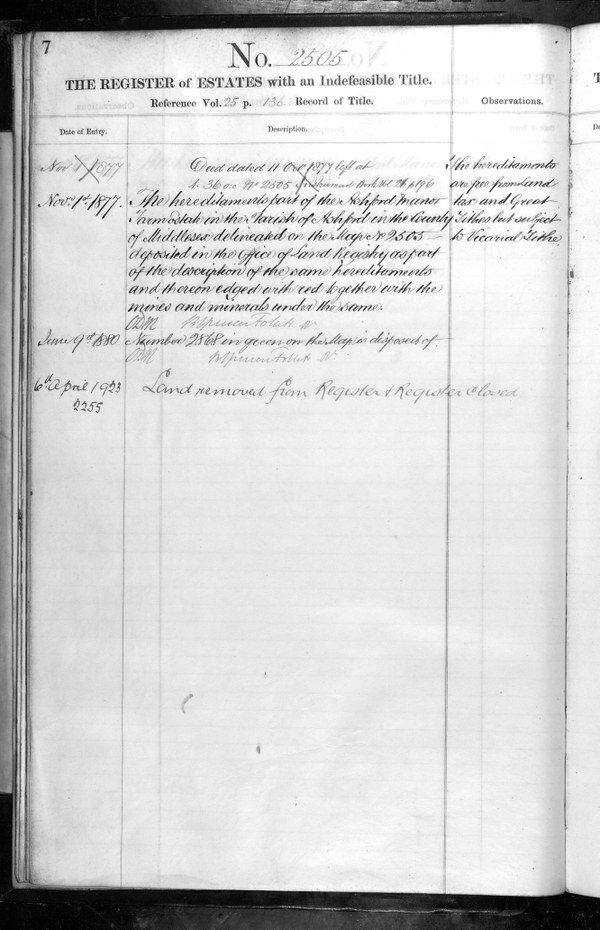 7
No. 2505
THE REGISTER of ESTATES with an Indefeasible Title.
Reference Vol. 25 p. 136 Record of Title.
Observations.
Date of Entry.
Description.
Nov 1 1877
Deed dated 11 Oct 1877 left at
1.36 Nº 2505 Instrument Book Vol. p 196
Novr. 1st. 1877.
The hereditaments part of the Ashford Manor
Farm Estate in the Parish of Ashford in the County
of Middlesex delineated on the Map Nº 2505
deposited in the Office of Land Registry as part
of the description of the same hereditaments
and thereon edged with red together with the
mines and minerals under the same.
The hereditaments
are free from Land
tax and Great
Tithes but subject
to Vicarial Tithe
June 9th. 1880.
Number 2868 in green on the Map is disposed of.
6th April 1923
2255
Land removed from Register & Register closed